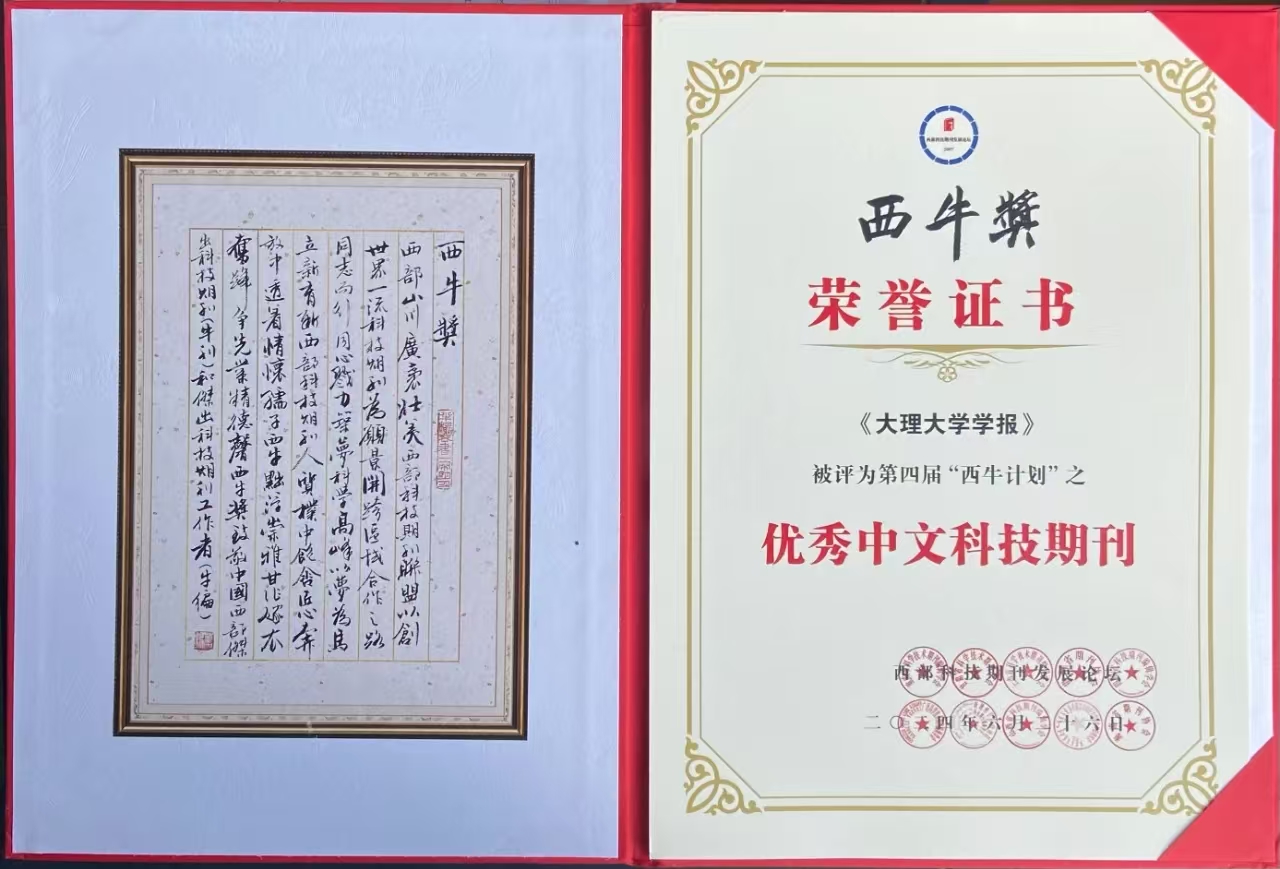 西牛獎
西部山川廣袤壯美西部科技期刊聯盟以創
世界一流科技期刊為願景開跨區域合作之路
同志而行同心戮力築夢科學高峰以夢為馬
立新育新西部科技期刊人質樸中飽含匠心奔
放中透著情懷孺子西牛點浮崇雅甘作嫁衣
奮蹄爭先業精德馨西牛獎致敬中國西部傑
出科技期刊(牛刊)和傑出科技期刊工作者(牛編)
西部科技期刊发展论坛
2007
西牛獎
荣誉证书
《大理大学学报》
被评为第四届“西牛计划”之
优秀中文科技期刊
西部科技期刊发展论坛
二〇二四年六月二十六日